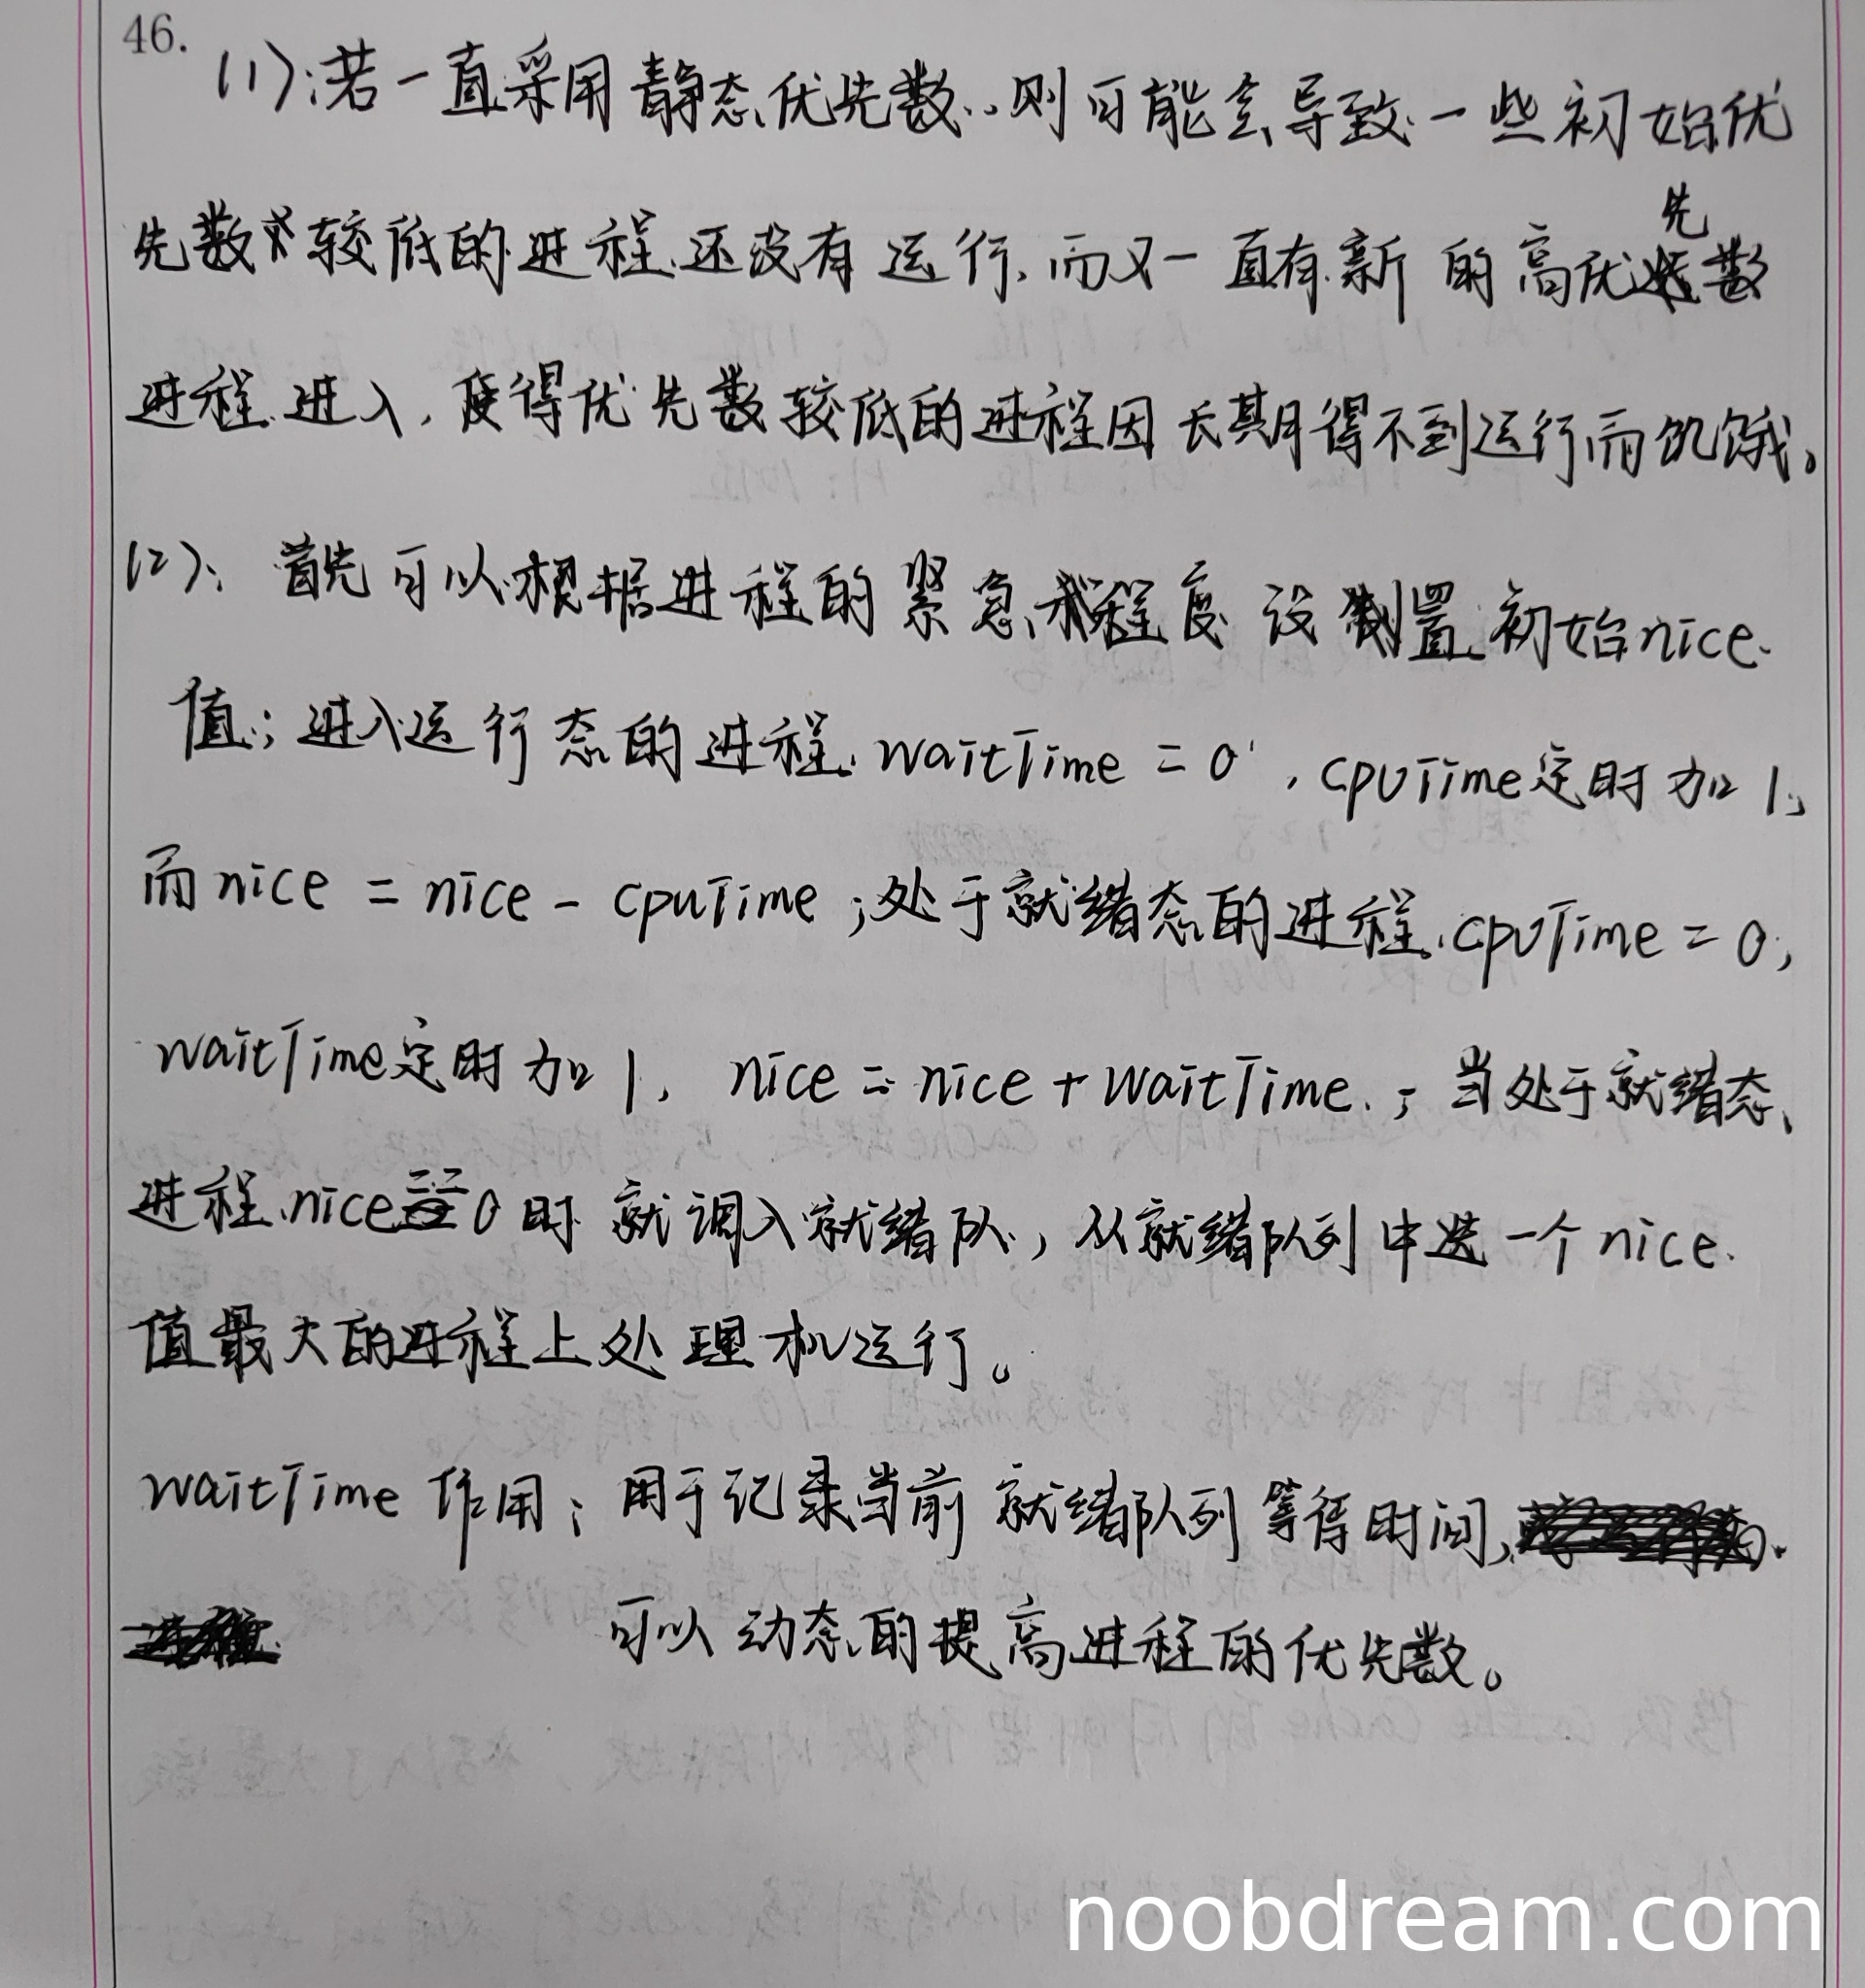 46.
(1):若一直采用静态优先数,则可能会导致一些初始优
先数较低的进程还没有运行,而又一直有新的高优先数
进程进入,使得优先数较低的进程因长期得不到运行而饥饿。
(2)、首先可以根据进程的紧急程度设置初始nice
值;进入运行态的进程waitTime = 0,cpuTime定时加1,
而nice = nice - cpuTime;处于就绪态的进程,cpuTime = 0,
waitTime定时加1, nice = nice + waitTime;当处于就绪态
进程nice 0时就调入就绪队,从就绪队列中选一个nice
值最大的进程上处理机运行。
waitTime 作用:用于记录当前就绪队列等待时间,
可以动态的提高进程的优先数。
noobdream.com